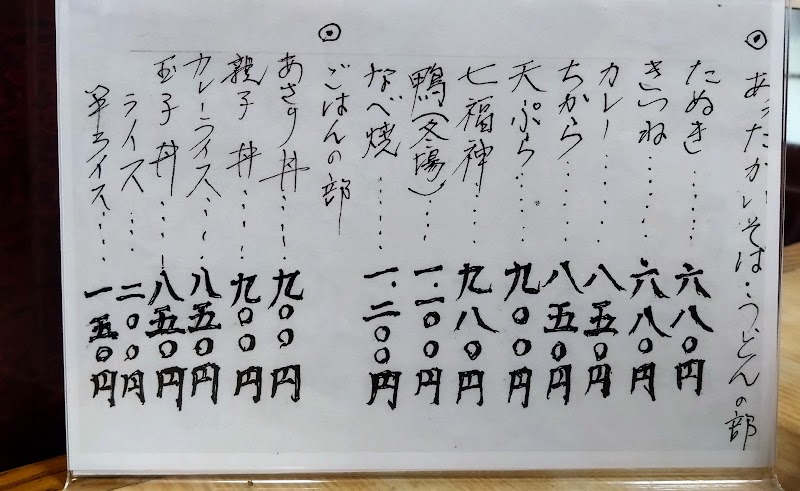 ◎ あたたかいそば・うどんの部
たぬき……六八〇円
きつね……六八〇円
カレー……八五〇円
ちから……八五〇円
天ぷら……九〇〇円
七福神……九八〇円
鴨(冬場)……一、一〇〇円
なべ焼……一、二〇〇円
◎ ごはんの部
あさり丼……九〇〇円
親子丼……九〇〇円
カレーライス……八五〇円
玉子丼……八五〇円
ライス……二〇〇円
半ライス……一五〇円